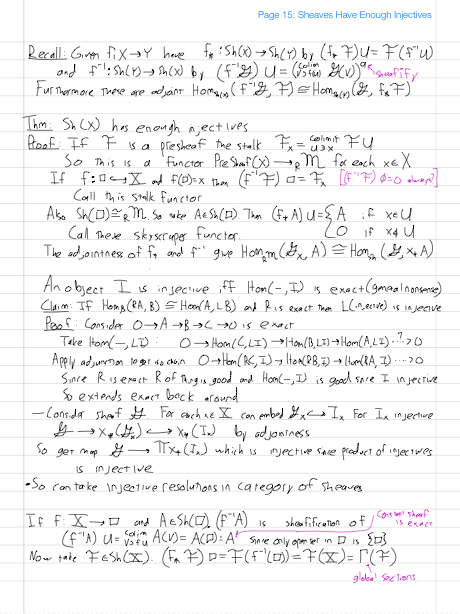 Page 15: Sheaves Have Enough Injectives
Recall: Given f: X → Y have f_* : Sh(X) → Sh(Y) by (f_* F) U = F(f⁻¹ U)
and f⁻¹ : Sh(Y) → Sh(X) by (f⁻¹ G) U = (colim_{V ⊃ f U} G(V))^a sheafify
Furthermore these are adjoint Hom_{Sh(X)}(f⁻¹ G, F) ≅ Hom_{Sh(Y)}(G, f_* F)
Thm: Sh(X) has enough injectives
Proof: If F is a presheaf the stalk F_x = colimit_{U ∋ x} F U
So this is a functor PreSheaf(X) → _R M for each x ∈ X
If f: □ ↪ X and f(□) = x then (f⁻¹ F) □ = F_x [(f⁻¹ F) ∅ = 0 always?]
Call this stalk functor
Also Sh(□) ≅ _R M. So take A ∈ Sh(□). Then (f_* A) U = { A if x ∈ U
0 if x ∉ U
Call these skyscraper functor.
The adjointness of f_* and f⁻¹ give Hom_{_R M}(G_x, A) ≅ Hom_{Sh}(G, x_* A)
An object I is injective iff Hom(−, I) is exact (general nonsense)
Claim: If Hom_B(RA, B) ≅ Hom(A, LB) and R is exact then L(injective) is injective
Proof: Consider 0 → A → B → C → 0 is exact
Take Hom(−, LI) : 0 → Hom(C, LI) → Hom(B, LI) → Hom(A, LI) ⋯?> 0
Apply adjunction to get to chain 0 → Hom(RC, I) → Hom(RB, I) → Hom(RA, I) ⋯> 0
Since R is exact R of thing is good and Hom(−, I) is good since I injective
So extends exact back around
— Consider sheaf G. For each x ∈ X can embed G_x ↪ I_x for I_x injective
G → x_*(G_x) ↪ x_*(I_x) by adjointness
So get map G → ∏ x_*(I_x) which is injective since product of injectives
is injective
• So can take injective resolutions in category of sheaves
If f: X → □ and A ∈ Sh(□), (f⁻¹ A) is sheafification of Constant sheaf
is exact
(f⁻¹ A) U = colim_{V ⊃ f U} A(V) = A(□) = A since only open set in □ is {□}
Now take F ∈ Sh(X). (f_* F) □ = F(f⁻¹(□)) = F(X) = Γ(F)
global sections